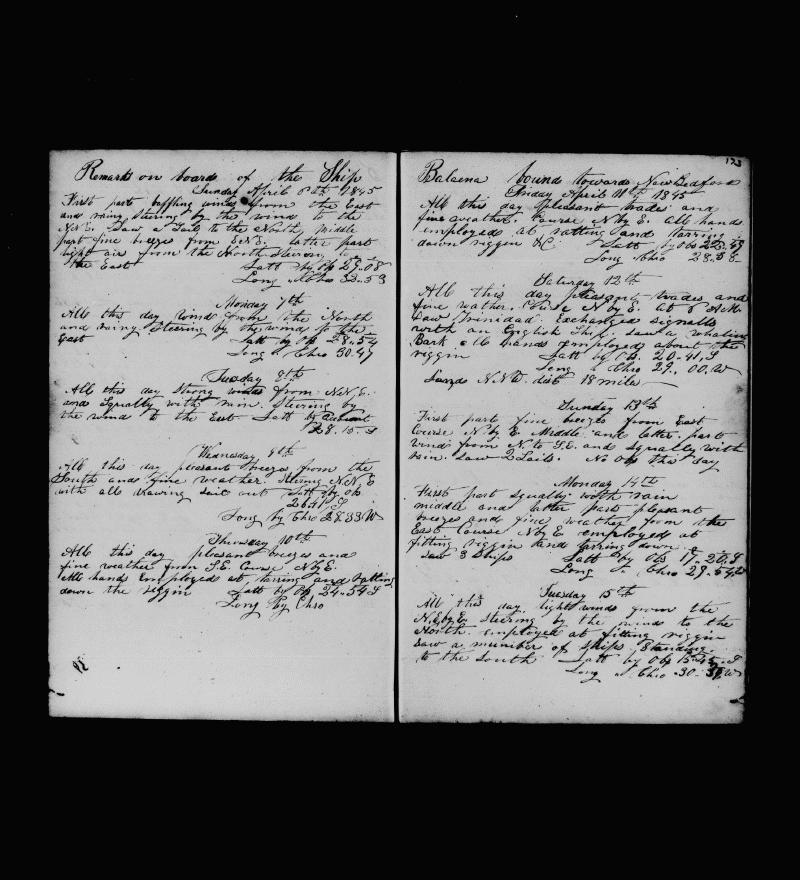 Remarks on board of the Ship
Sunday April 6th 1845
First part baffling winds from the East
and rainy steering by the wind to the
N.N.E. Saw a Sail to the North, middle
part fine breezes from E.N.E. latter part
light air from the North Steering to
the East Latt by Ob 29-08
Long " Chro 33-53
Monday 7th
All this day wind from the North
and rainy Steering by the wind to the
East Latt by Ob 28-54
Long " Chro 30.47
Tuesday 8th
All this day Strong winds from N.N.E.
and Squally with rain. Steering by
the wind to the East Latt by
28-15-S
Wednesday 9th
All this day pleasant breezes from the
South and fine weather. Steering N.N.E
with all drawing sail out Latt by Ob
26 41 S
Long by Chro 28.33 W
Thursday 10th
All this day pleasant breezes and
fine weather from S.E. Course N by E.
All hands Employed at tarring and ratling
down the riggin Latt by Ob 24-54 S
Long By Chro
123
Balaena bound towards New Bedford
Friday April 11th 1845
All this day pleasant trades and
fine weather. Course N by E. all hands
employed at ratling and tarring
down riggin &c. Latt by Ob 22.49
Long " Chro 28.58
Saturday 12th
All this day pleasant trades and
fine wather. Course N by E. at 6 A.M.
Saw Trinidad. Exchanged signalls
with an English Ship. Saw a whaling
Bark All hands employed about the
riggin Latt by Ob. 20-41, S
Long " Chro 29, 00, W
Land N.N.W. dist 18 miles
Sunday 13th
First part fine breezes from East
Course N by E. Middle and latter part
wind from N to S.E. and Squally with
rain. Saw 2 Sails. No Ob this day
Monday 14th
First part squally with rain
middle and latter part pleasant
breezes and fine weather from the
East Course N by E employed at
fitting riggin and tarring down.
Saw 3 Ships Latt by Ob 17-20, S
Long " Chro 29-54, W
Tuesday 15th
All this day light winds from the
N.E. by E. Steering by the wind to the
North. employed at fitting riggin
Saw a number of Ships Standing
to the South Latt by Ob 15-45, S
Long " Chro 30-39 W